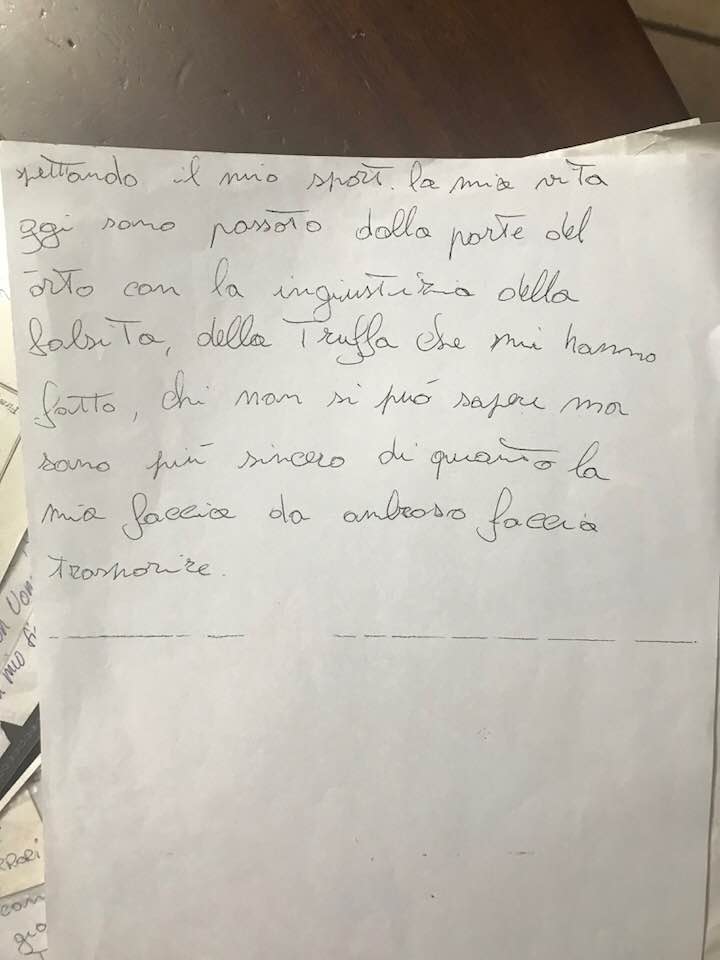 spettando il mio sport. la mia vita
ggi sono passato dalla parte del
orto con la ingiustizia della
falsita, della Truffa che mi hanno
fatto, chi non si può sapere ma
sono più sincero di quanto la
mia faccia da ambroso faccia
trasparire.
mio
RRORI
com
gio